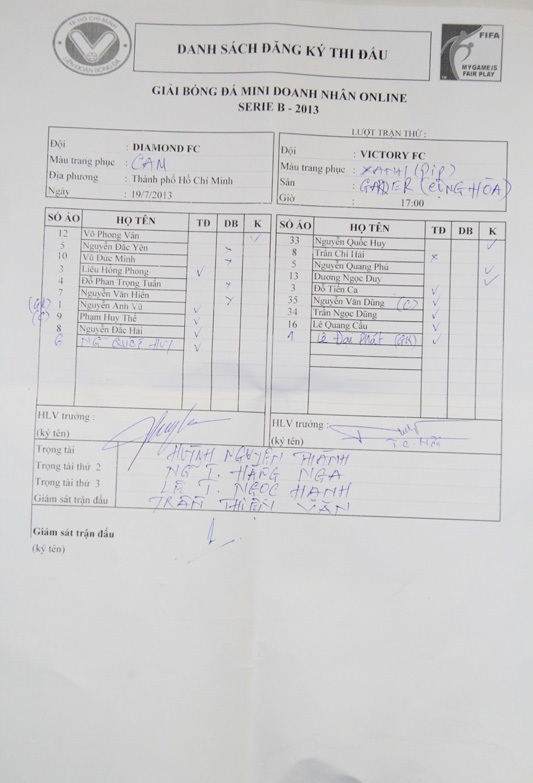 TP HỒ CHÍ MINH
LIÊN ĐOÀN BÓNG ĐÁ
DANH SÁCH ĐĂNG KÝ THI ĐẤU
FIFA
MY GAME IS
FAIR PLAY
GIẢI BÓNG ĐÁ MINI DOANH NHÂN ONLINE
SERIE B - 2013
LƯỢT TRẬN THỨ :
Đội : DIAMOND FC
Màu trang phục : CAM
Địa phương : Thành phố Hồ Chí Minh
Ngày : 19/7/2013
Đội : VICTORY FC
Màu trang phục : XANH
Sân : (CỘNG HÒA)
Giờ : 17:00
SỐ ÁO HỌ TÊN TĐ DB K
12 Võ Phong Vân ✓
5 Nguyễn Đắc Yên x
10 Vũ Đức Minh x
3 Liêu Hồng Phong ✓
4 Đỗ Phan Trọng Tuấn x
7 Nguyễn Văn Hiến x
(GK) 1 Nguyễn Anh Vũ ✓
(C) 9 Phạm Huy Thế ✓
8 Nguyễn Đắc Hải ✓
6 NG QUỐC HUY ✓
SỐ ÁO HỌ TÊN TĐ DB K
33 Nguyễn Quốc Huy ✓
8 Trần Chí Hải x
5 Nguyễn Quang Phú ✓
13 Dương Ngọc Duy ✓
3 Đỗ Tiến Ca ✓
35 Nguyễn Văn Dũng (C) ✓
34 Trần Ngọc Dũng ✓
16 Lê Quang Cầu ✓
1 Lê Đại Phát (GK) ✓
HLV trưởng :
(ký tên)
HLV trưởng :
(ký tên)
Trọng tài HUỲNH NGUYÊN THÀNH
Trọng tài thứ 2 NG T. HẰNG NGA
Trọng tài thứ 3 LÊ T. NGỌC HẠNH
Giám sát trận đấu TRẦN THIÊN VÂN
Giám sát trận đấu
(ký tên)